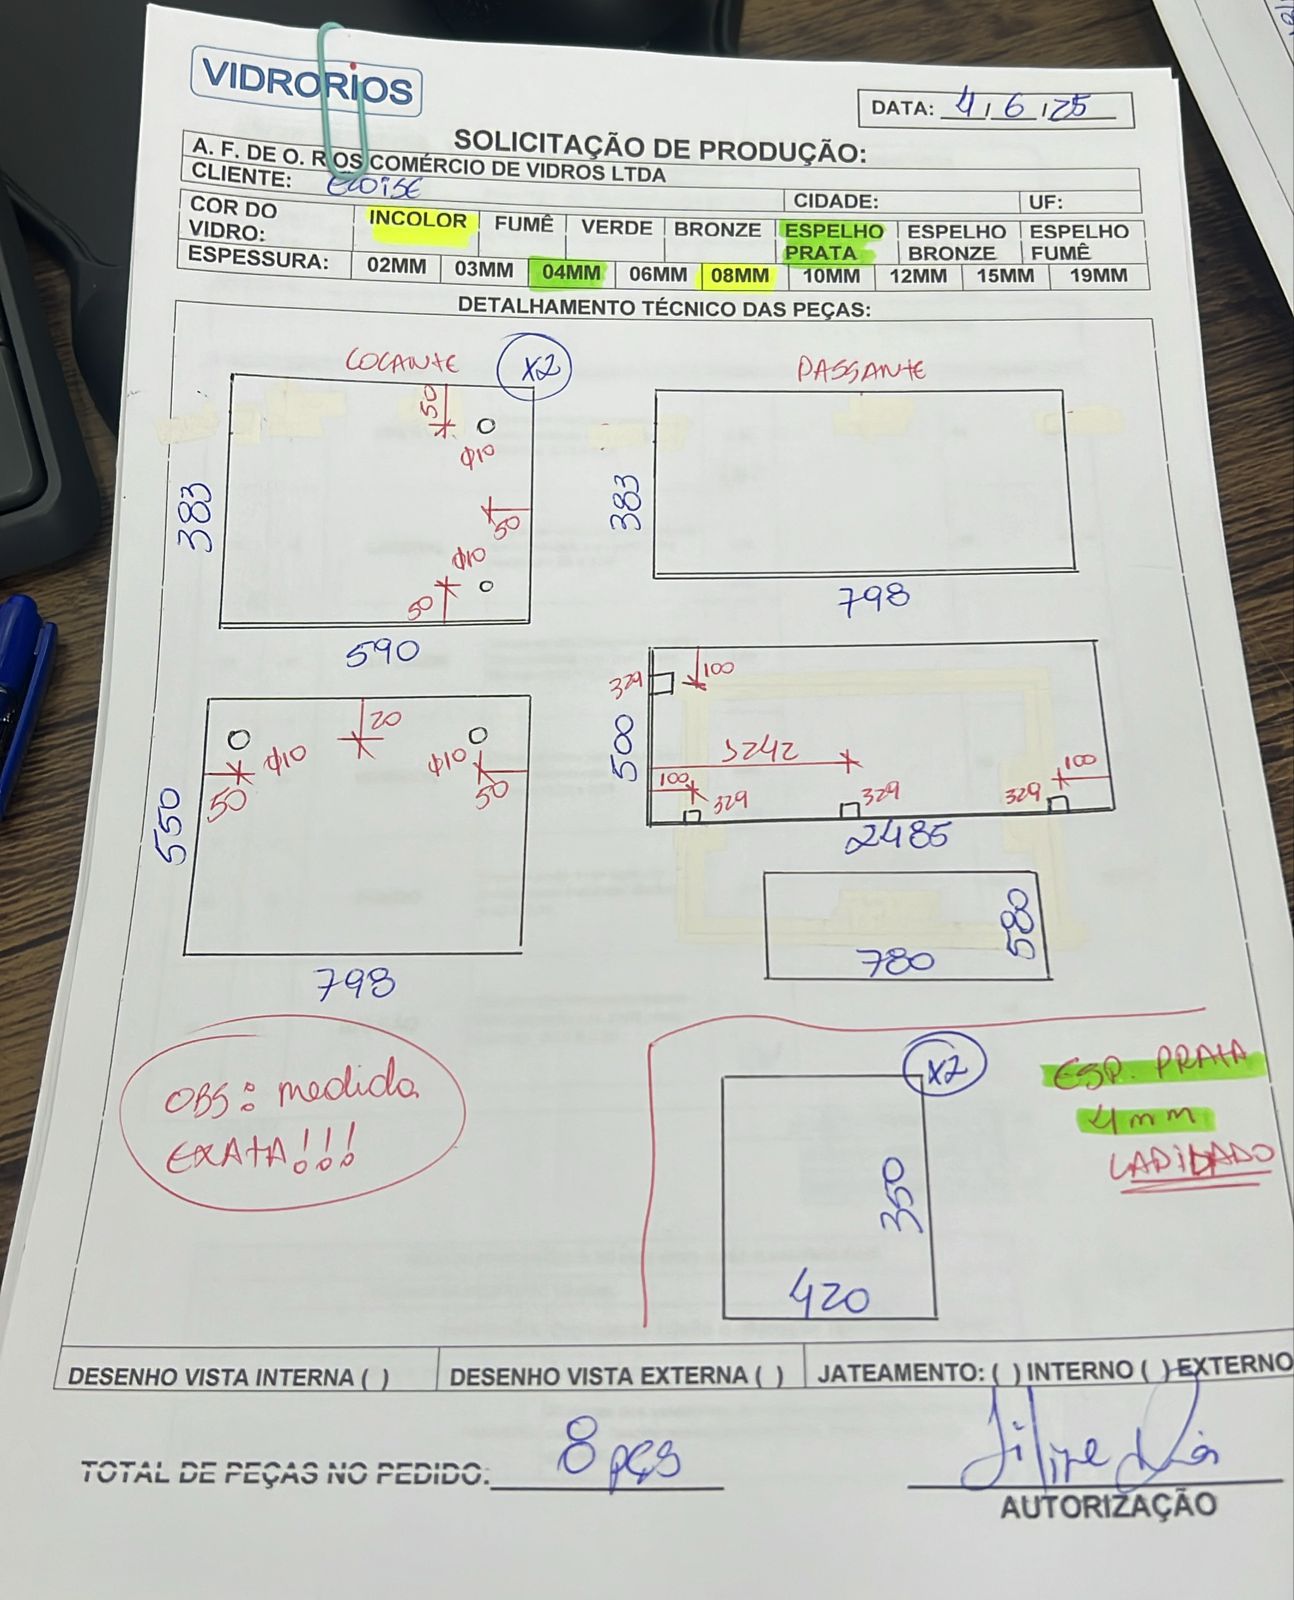 VIDRORIOS
DATA: 4 / 6 / 25
SOLICITAÇÃO DE PRODUÇÃO:
A. F. DE O. RIOS COMÉRCIO DE VIDROS LTDA
CLIENTE: ELOISE CIDADE: UF:
COR DO VIDRO: INCOLOR FUMÊ VERDE BRONZE ESPELHO PRATA ESPELHO BRONZE ESPELHO FUMÊ
ESPESSURA: 02MM 03MM 04MM 06MM 08MM 10MM 12MM 15MM 19MM
DETALHAMENTO TÉCNICO DAS PEÇAS:
LOCANTE X2
50
Φ10
383
50
Φ10
50
590
PASSANTE
383
798
20
Φ10
Φ10
50
50
550
798
329
100
500
1242
100
100
329
329
329
2485
580
780
OBS: medida
EXATA!!!
X2
350
420
ESP. PRATA
4mm
LAPIDADO
DESENHO VISTA INTERNA ( ) DESENHO VISTA EXTERNA ( ) JATEAMENTO: ( ) INTERNO ( ) EXTERNO
TOTAL DE PEÇAS NO PEDIDO: 8 pçs
AUTORIZAÇÃO